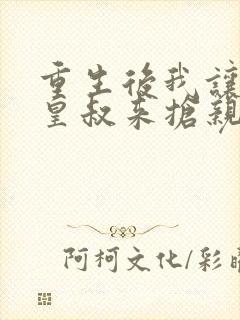 重生後我讓
皇叔来搶親
阿柯文化/彩